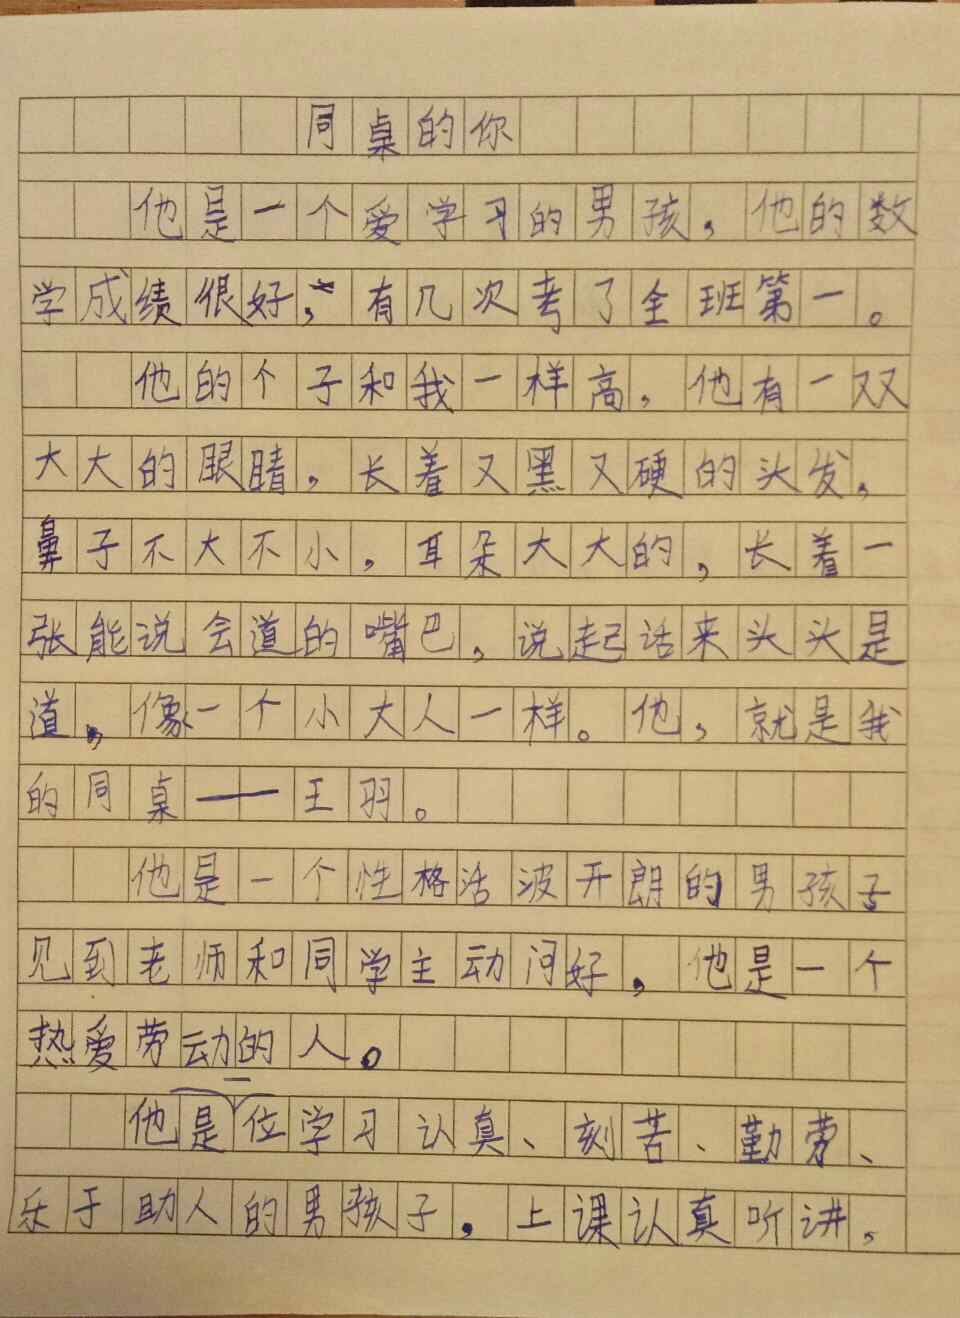 同桌的你
他是一个爱学习的男孩，他的数
学成绩很好，有几次考了全班第一。
他的个子和我一样高，他有一双
大大的眼睛，长着又黑又硬的头发，
鼻子不大不小，耳朵大大的，长着一
张能说会道的嘴巴，说起话来头头是
道，像一个小大人一样。他，就是我
的同桌——王羽。
他是一个性格活波开朗的男孩子
见到老师和同学主动问好，他是一个
热爱劳动的人。
他是一位学习认真、刻苦、勤劳、
乐于助人的男孩子，上课认真听讲，